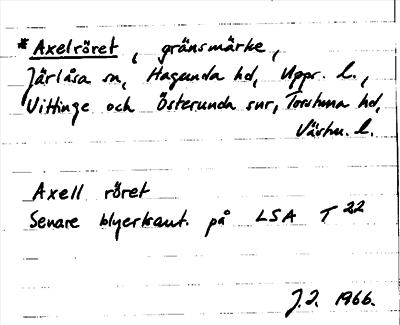 *Axelröret, gränsmärke,
Järlåsa sn, Hagunda hd, Upps. l.,
Vittinge och Österunda snr, Torstuna hd,
Västm. l.
Axell röret
Senare blyertsant. på LSA T 22
J.J. 1966.